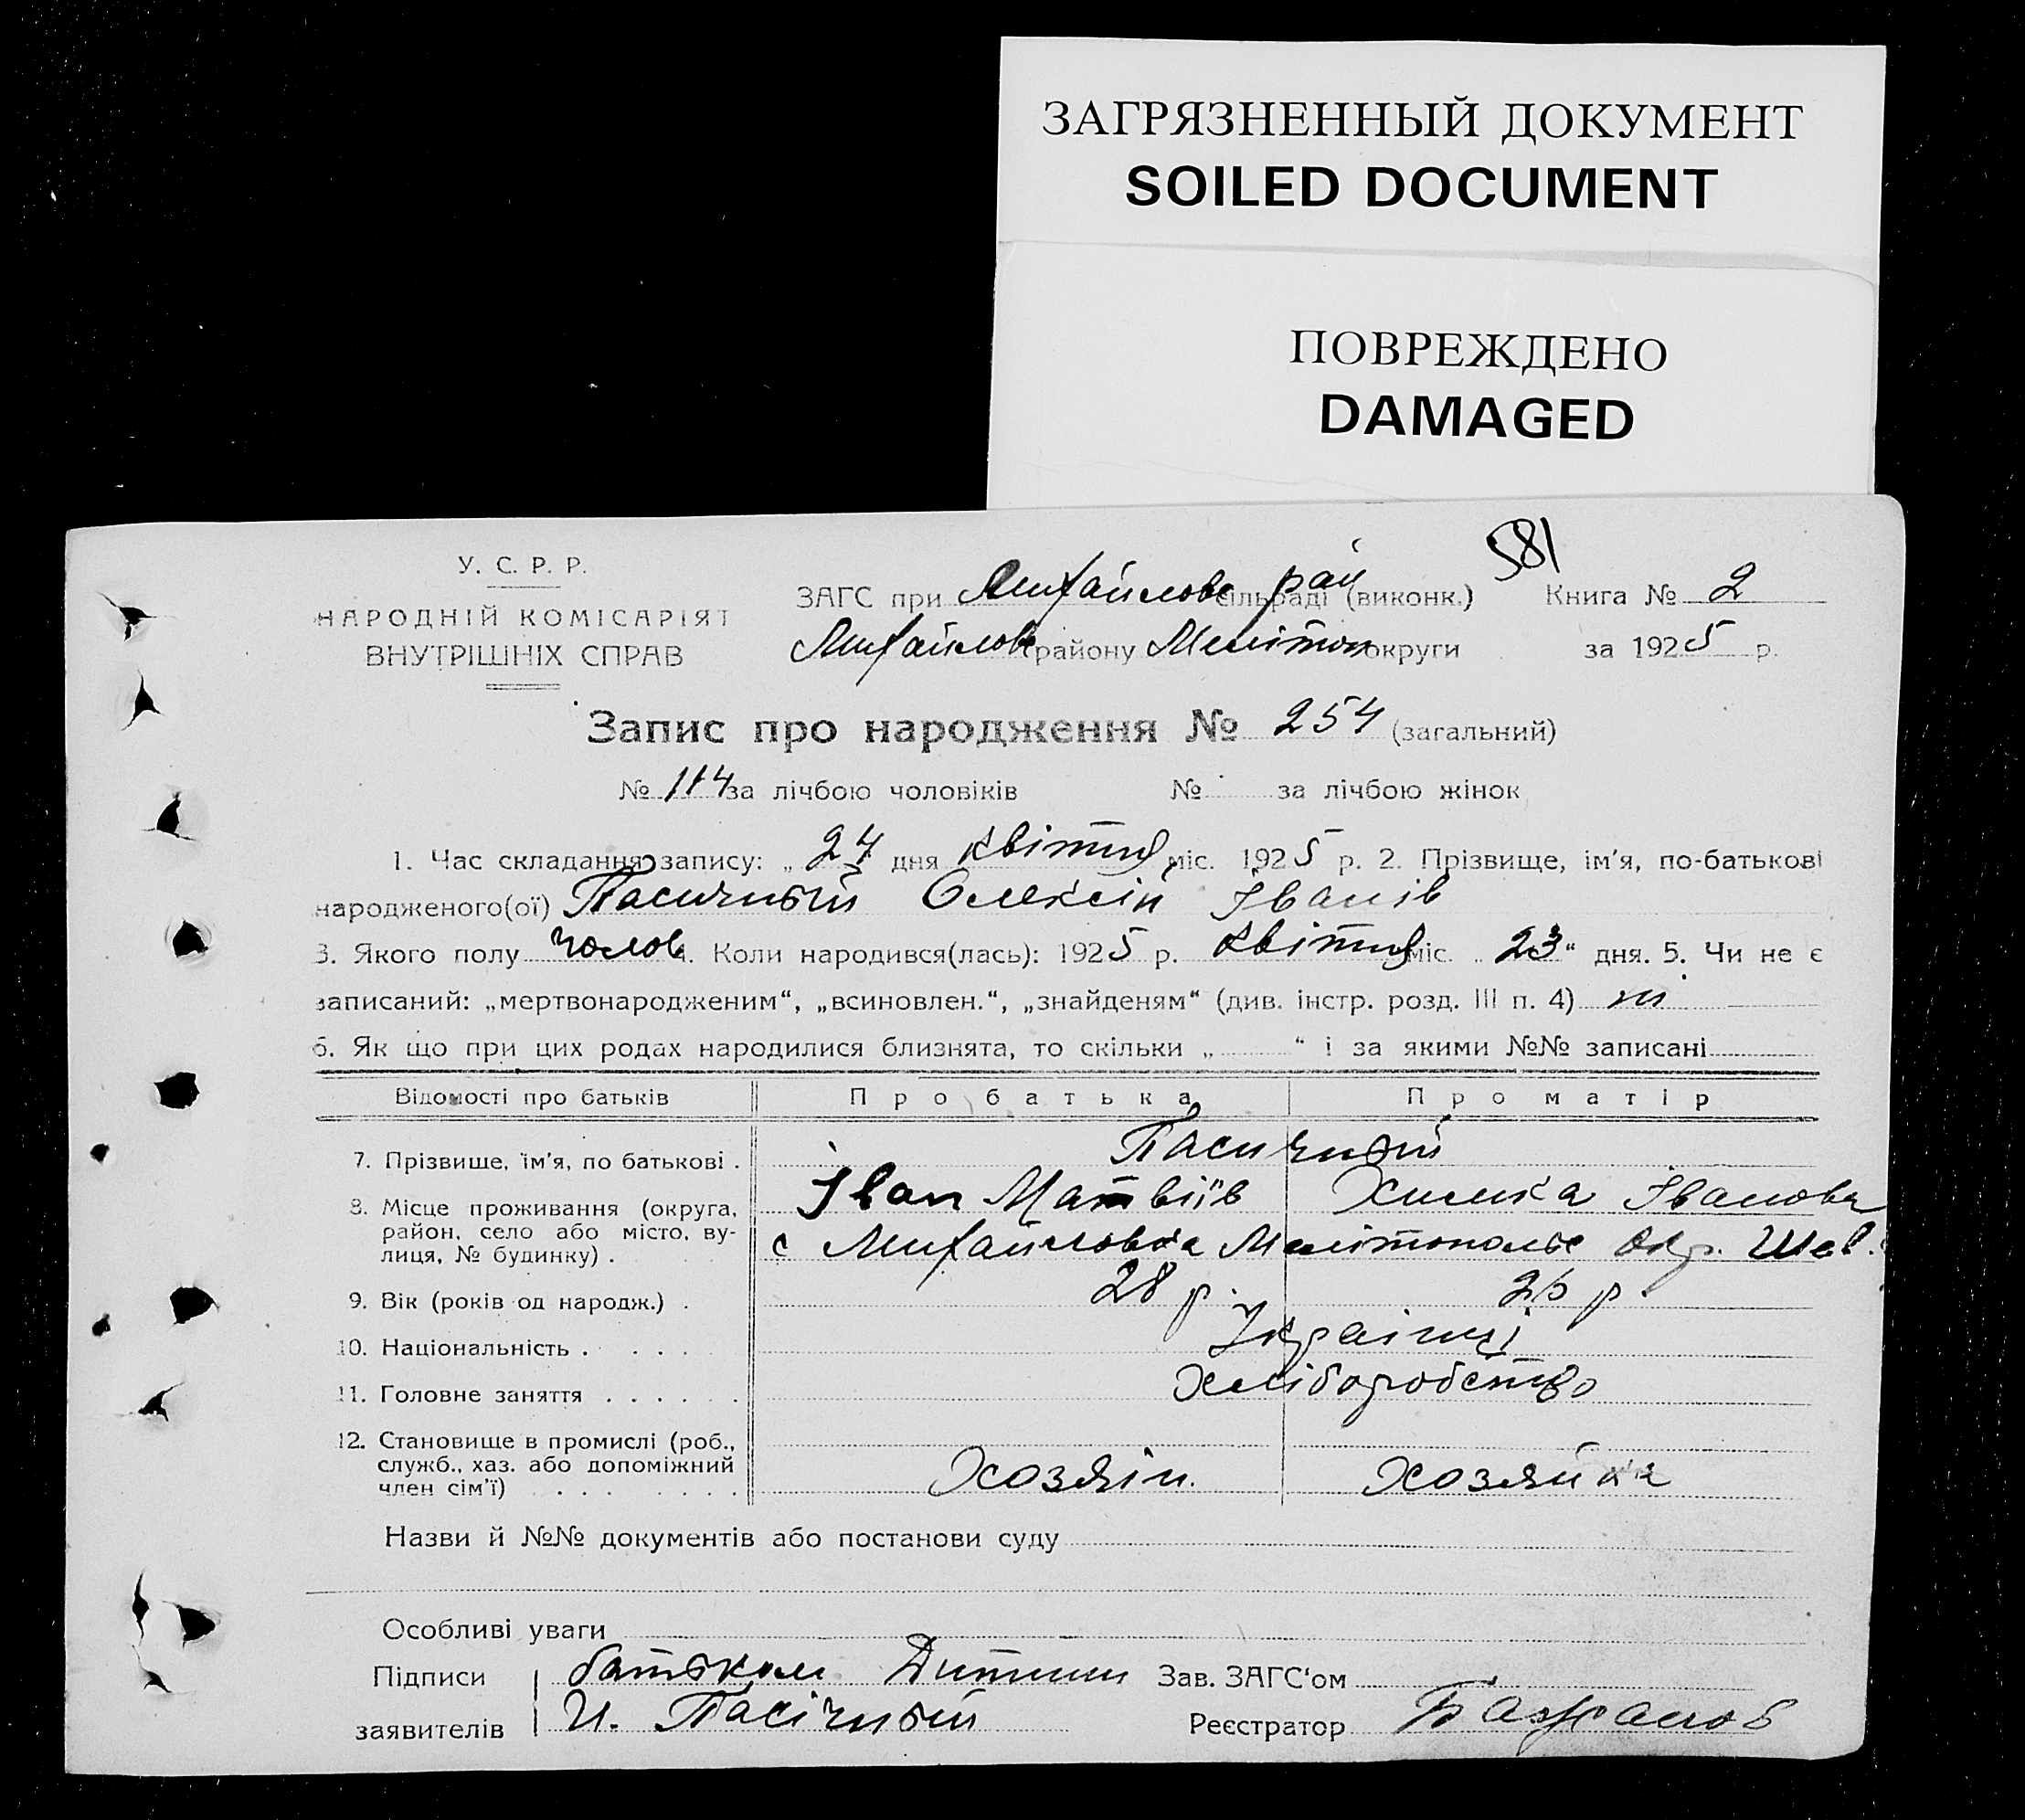 ЗАГРЯЗНЕННЫЙ ДОКУМЕНТ
SOILED DOCUMENT
ПОВРЕЖДЕНО
DAMAGED
581
У. С. Р. Р.
НАРОДНІЙ КОМІСАРІЯТ
ВНУТРІШНІХ СПРАВ
ЗАГС при Михайлов сільраді рай (виконк.) Книга № 2
Михайлов району Мелітоп округи за 1925 р.
Запис про народження № 254 (загальний)
№ 114 за лічбою чоловіків № за лічбою жінок
1. Час складання запису: „ 24 дня квітня міс. 1925 р. 2. Прізвище, ім'я, по-батькові
народженого(ої) Пасичный Олексій Іванів
3. Якого полу чолов 4. Коли народився(лась): 1925 р. квітня міс. „ 23 “ дня. 5. Чи не є
записаний: „мертвонародженим“, „всиновлен.“, „знайденям“ (див. інстр. розд. III п. 4) ні
6. Як що при цих родах народилися близнята, то скільки „ “ і за якими №№ записані
Відомості про батьків Про батька Про матір
7. Прізвище, ім'я, по батькові . Пасичный
Іван Матвіїв Химка Іванова
8. Місце проживання (округа,
район, село або місто, ву-
лиця, № будинку) . с Михайловка Мелітопольс окр. Шев.
9. Вік (років од народж.) . 28 р. 26 р.
10. Національність . . . . Українці
11. Головне заняття . . . . . . Хліборобство
12. Становище в промислі (роб.,
служб., хаз. або допоміжний
член сім'ї) . . . . . . . Хозяін. Хозяйка
Назви й №№ документів або постанови суду
Особливі уваги
Підписи батьком Дитини Зав. ЗАГС'ом
заявителів И. Пасічный Реєстратор Бажанов